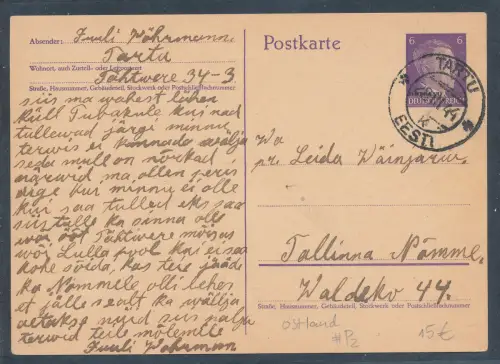 Absender: Juuli Wöhrmann
Tartu
Wohnort, auch Zustell- oder Leitpostamt
Tähtwere 34-3
Straße, Hausnummer, Gebäudeteil, Stockwerk oder Postschließfachnummer
siis ma wahest lähen
küll Tubakule kui nad
tullewad järgi minu
terwis ei kannada wälja
seda mull on nörkad
närwid ma ollen peris
ärge kui minnu ei olle
kui saa tulled eks saa
siis tulle ka sinna olli
woi ööt Tähtwere möisas
woi Lulla pool kui ei saa
kohe söida, kas teie jääde
ka Nömmele olli lehes
et jälle sealt ka wälja
aetakse nüid siis palju
terwid teile mölemille
Juuli Wöhrmann
Postkarte
6 6
DEUTSCHES REICH
TARTU
EESTI
Wa
pr. Leida Wäinjärw.
Tallinna Nömme.
Waldeko 44.
Straße, Hausnummer, Gebäudeteil, Stockwerk oder Postschließfachnummer
Ostland
*P2
15€